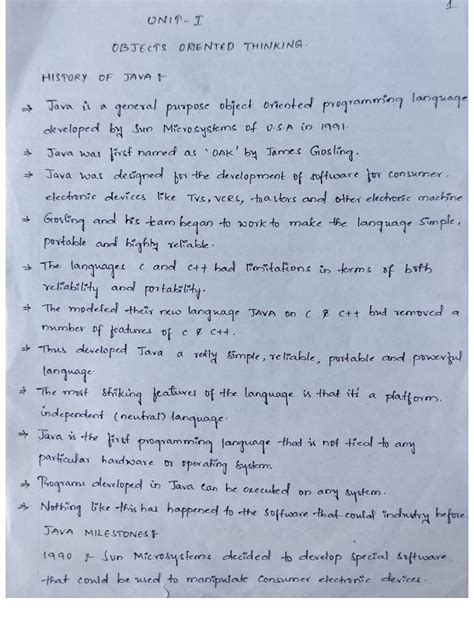 1
UNIT-I
OBJECTS ORIENTED THINKING.
HISTORY OF JAVA :-
⇒ Java is a general purpose object oriented programming language
developed by Sun Microsystems of U.S.A in 1991.
⇒ Java was first named as 'OAK' by James Gosling.
⇒ Java was designed for the development of software for consumer.
electronic devices like TVs, VCRs, toastors and other electronic machine
⇒ Gosling and his team began to work to make the language simple,
portable and highly reliable.
⇒ The languages C and C++ had limitations in terms of both
reliability and portability.
⇒ The modeled their new language JAVA on C & C++ but removed a
number of features of C & C++.
⇒ Thus developed Java a relly simple, reliable, portable and powerful
language.
⇒ The most striking features of the language is that it's a platform.
independent (neutral) language.
⇒ Java is the first programming language that is not tied to any
particular hardware or operating system.
⇒ Programs developed in Java can be executed on any system.
⇒ Nothing like this has happened to the software that industry before
JAVA MILESTONES :-
1990 :- Sun Microsystems decided to develop special software
that could be used to manipulate consumer electronic devices.